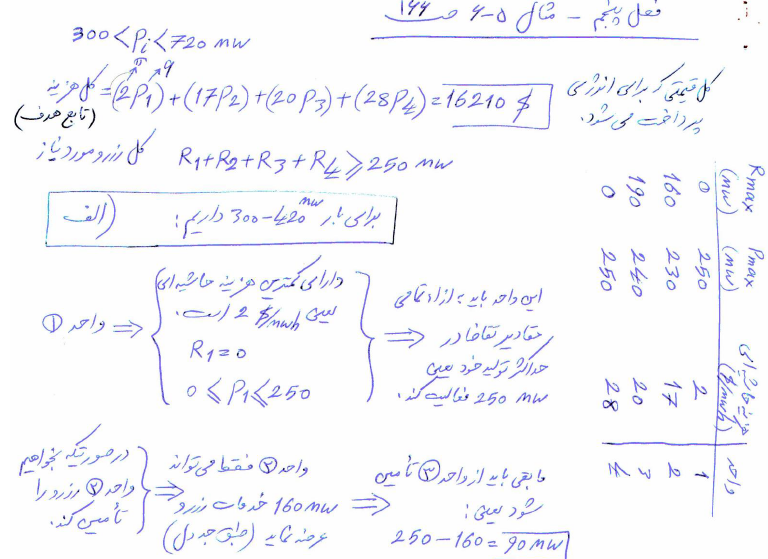 فصل پنجم - مثال 5-6 ص 144
300 < Pi < 720 MW
کل هزینه = (2P1) + (17P2) + (20P3) + (28P4) = 16210 $
(تابع هدف)
کل قیمتی که برای انرژی
پرداخت می شود.
کل رزرو مورد نیاز R1+R2+R3+R4 ⩾ 250 MW
الف) برای بار 300-420 MW داریم:
واحد ① ⇒
دارای کمترین هزینه حاشیه ای
یعنی 2 $/MWh است.
R1=0
0 ⩽ P1 ⩽ 250
⇒
این واحد باید به ازاء تمامی
مقادیر تقاضا در
حداکثر تولید خود یعنی
250 MW فعالیت کند.
در صورتیکه بخواهیم
واحد ② رزرو را
تأمین کند.
⇒
واحد ② فقط می تواند
160 MW خدمات رزرو
عرضه نماید (طبق جدول)
⇒
مابقی باید از واحد ③ تأمین
شود یعنی:
250-160=90 MW
واحد هزینه حاشیه ای ($/MWh) Pmax (MW) Rmax (MW)
1 2 250 0
2 17 230 160
3 20 240 190
4 28 250 0